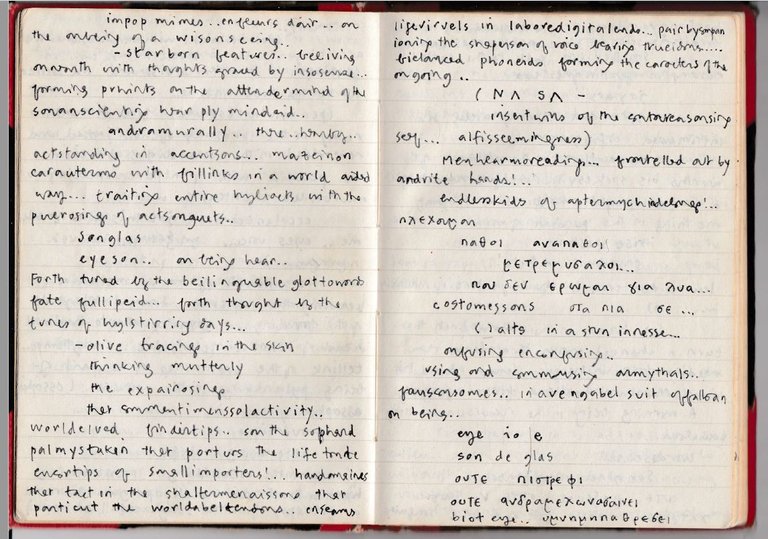 impop mimes.. enfleurs dáir.. on
the of a wisonseeing..
- starborn features.. beeliving
onwarth with thoughts by insosense...
forming prhints on the attendermind of the
sonanscienting hear ply mindeid..
andramurally.. thre.. hearby..
actstanding in accentsons... mazeinon
carauterms with fillinks in a world aided
way... traiting entire hyliacts with the
puerosing of actsonguets..
songlas
eyeson.. on being hear..
Forth tuned by the beilinguable glottowords
fate fullipeid... forth thought by the
tunes of hylstirring days...
- olive tracings in the skin
thinking mutterly
the expairosing
that ommentimenssolactivity..
worldelved findertips.. son the sophond
palmystaken that porturs the life trade
encortips of smallimporters!... handomeines
that tact in the shaltermenaissons that
particut the worldabeltendons.. ensears
lifevirvels in laboredigitalends... pair bysonpan
ioning the shaperson of voice bearing trueidoms....
bielanced phoneids forming the caracters of the
ongoing..
( ΝΛ SΛ -
insertwins of the contareasonsing
seef... alfisseemingness)
Menhearmoreadings... frontelled out by
andrite heads!...
endlesskids of aptermychindelongs!..
πλεχομαι
παθοι αναπαθοι!
μετρεμυσαλοι...
που δεν ερωμαι για λυα...
costomessons στα πια σε...
( ) alts in a stun innesse...
onfusing enconfusing..
using and commusing amythals..
fausconsomes.. in avengabel suit of falloan
on being..
eye io e
son de glas
ουτε πιοτρεφι
ουτε ανδραμεχωνοσαινει
biot eye.. υμνημηπαθρεσει